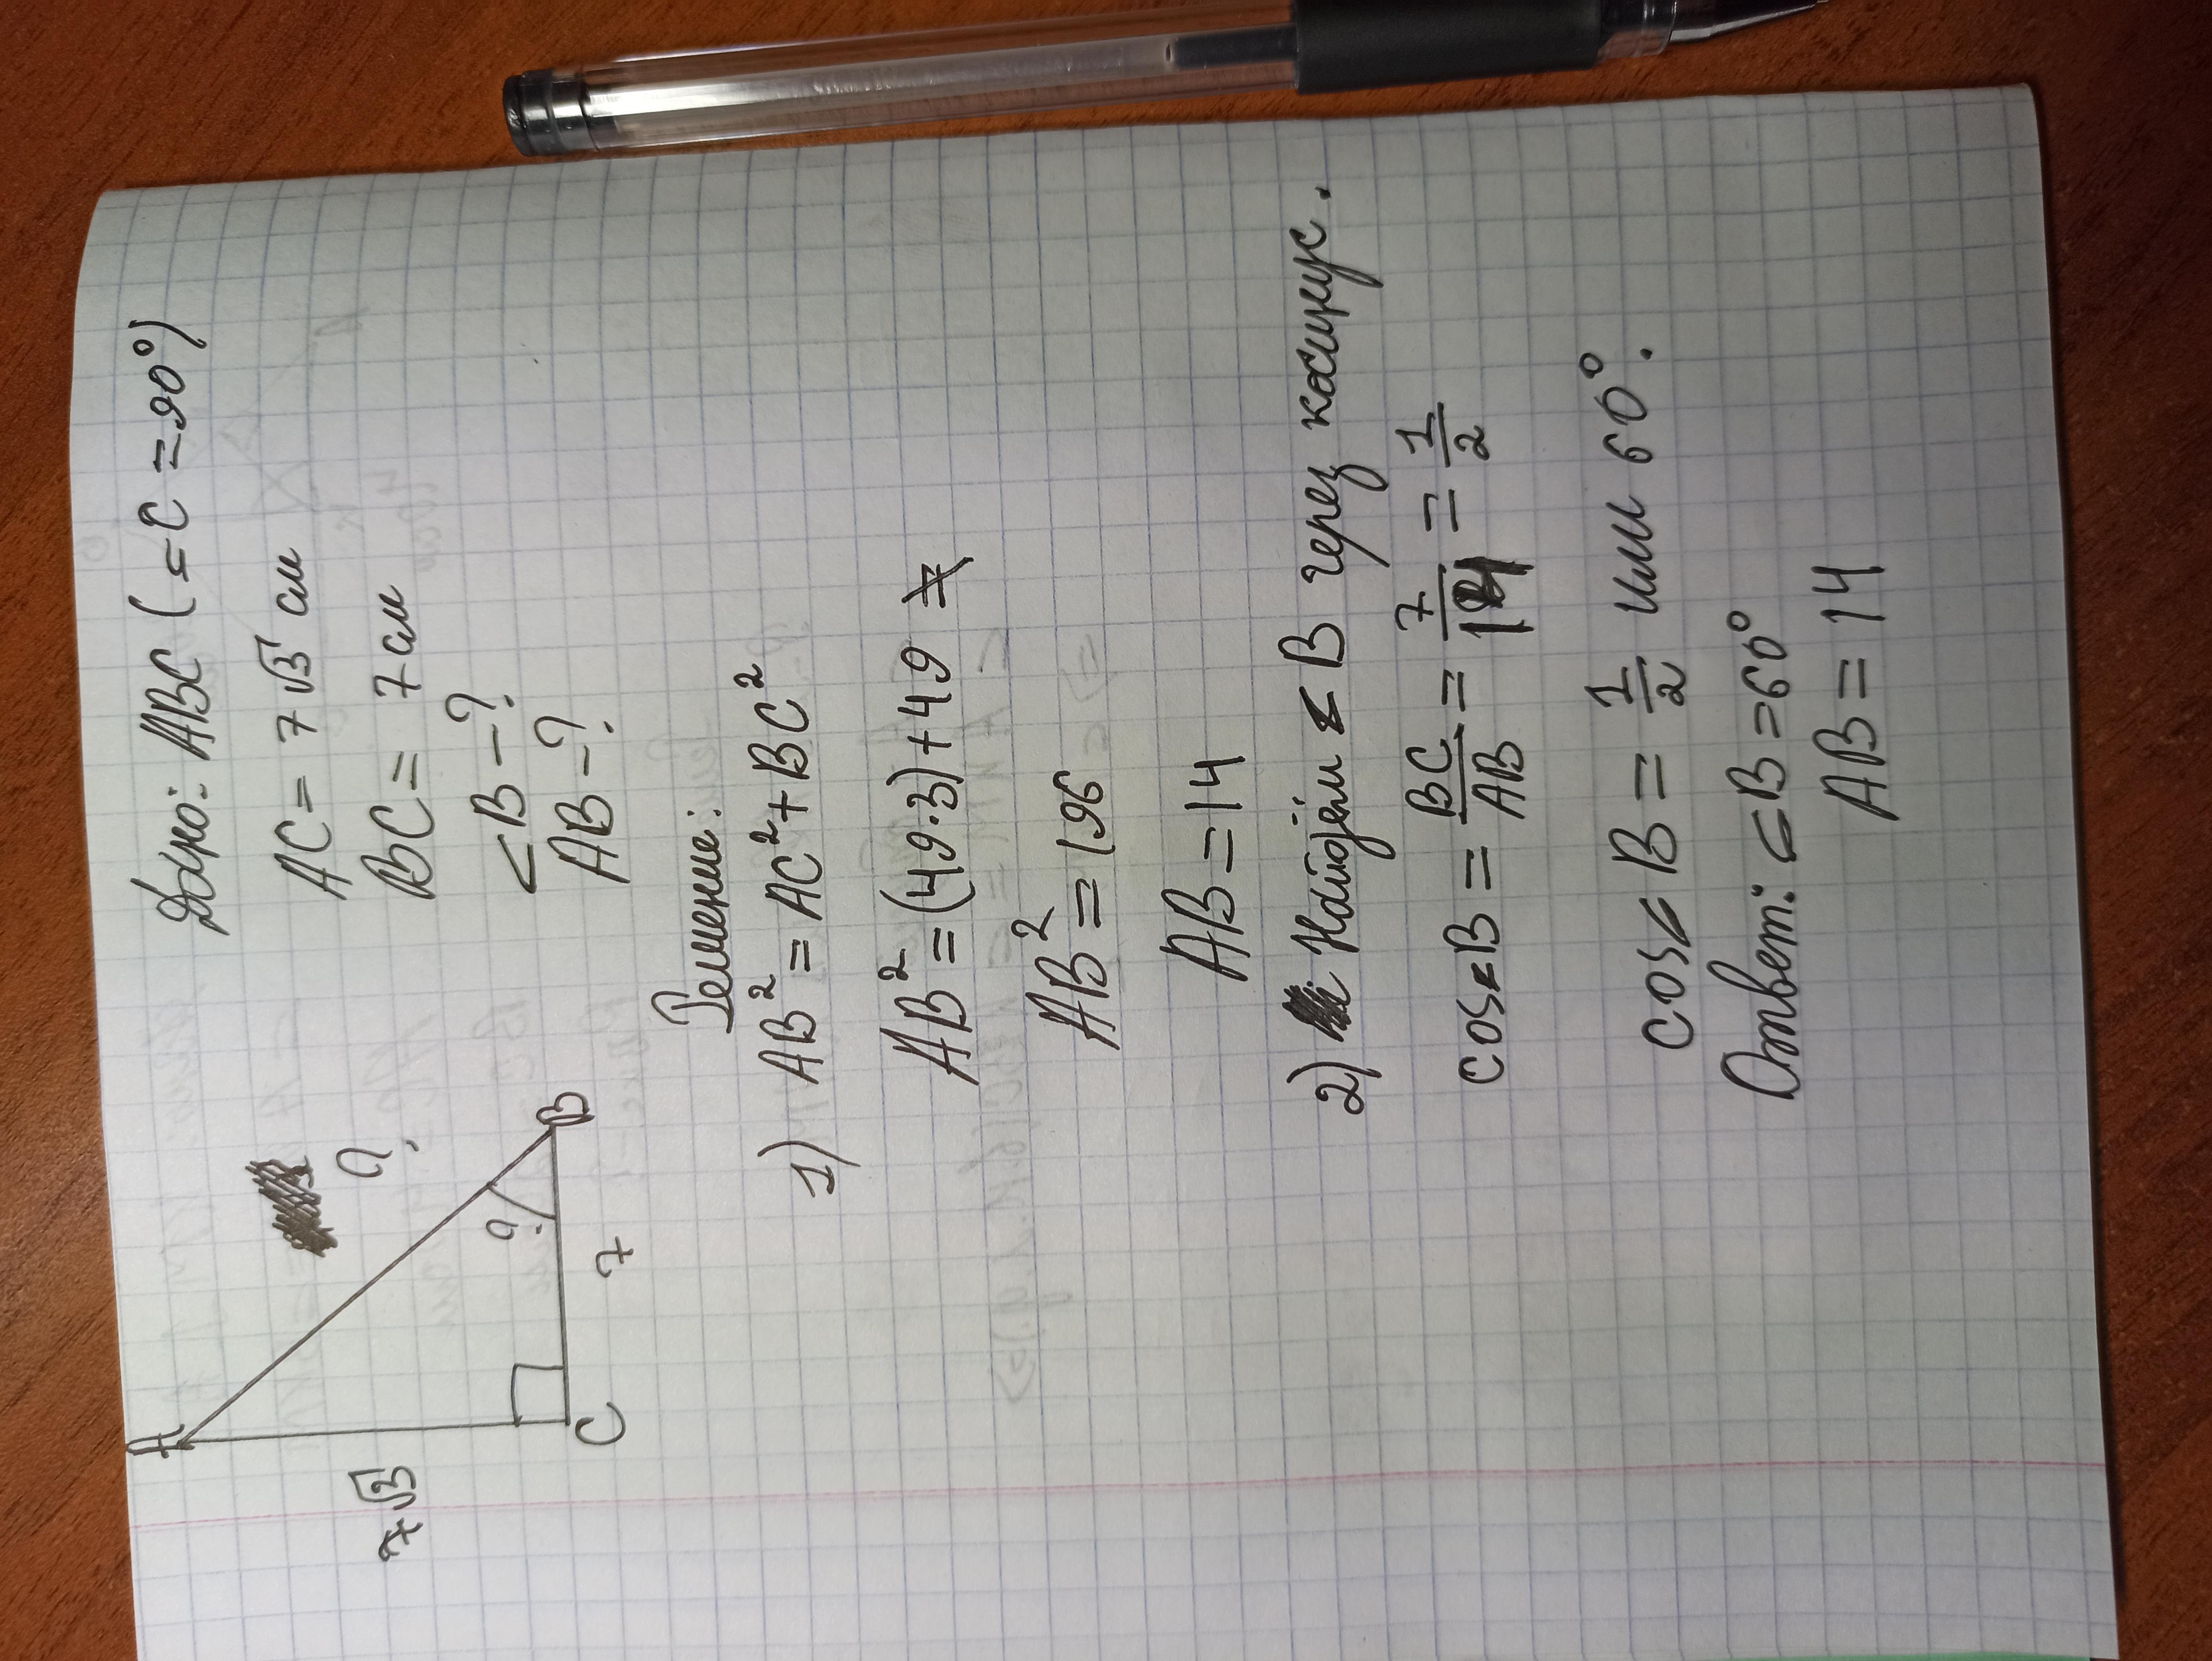 A
7√3
?
?
C
7
B
Дано: ABC (∠C = 90°)
AC = 7√3 см
BC = 7 см
∠B – ?
AB – ?
Решение:
1) AB² = AC² + BC²
AB² = (49·3) + 49
AB² = 196
AB = 14
2) Найдём ∠B через косинус.
cos∠B = BC/AB = 7/14 = 1/2
cos∠B = 1/2 или 60°.
Ответ: ∠B = 60°
AB = 14